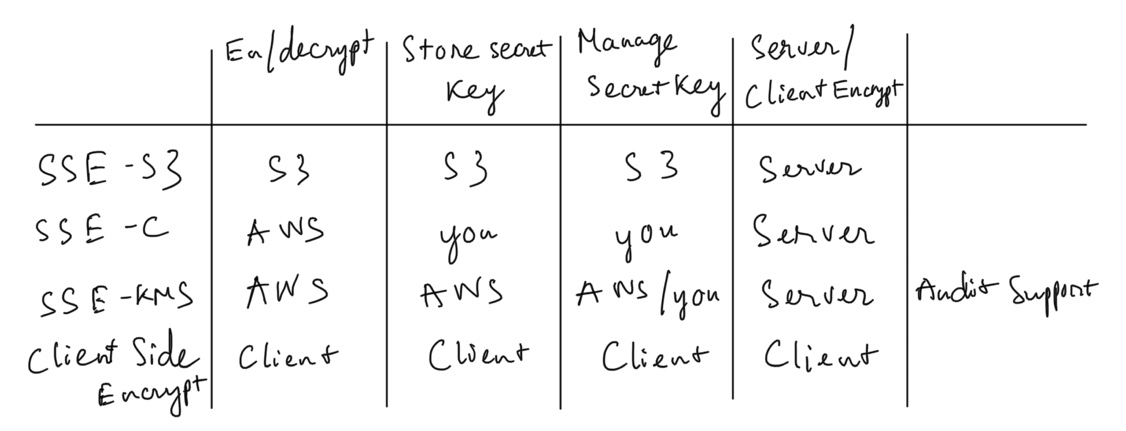 En/decrypt Store secret Key Manage Secret Key Server/ Client Encrypt
SSE-S3 S3 S3 S3 Server
SSE-C AWS you you Server
SSE-KMS AWS AWS AWS/you Server Audit Support
Client Side Encrypt Client Client Client Client